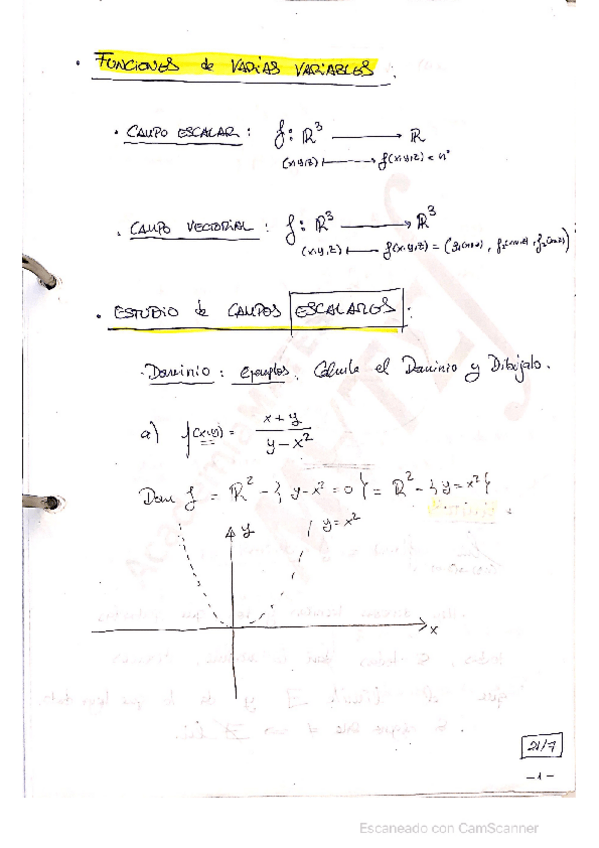 · FUNCIONES de VARIAS VARIABLES :
· CAMPO ESCALAR : f : ℝ³ ⟶ ℝ
(x,y,z) ⟼ f(x,y,z) = nº
· CAMPO VECTORIAL : f : ℝ³ ⟶ ℝ³
(x,y,z) ⟼ f(x,y,z) =
· ESTUDIO de CAMPOS ESCALARES :
· Dominio : Ejemplos. Calcula el Dominio y Dibújalo.
a) f(x,y) = (x+y)/(y-x²)
Dom f = ℝ² - { y-x² = 0 } = ℝ² - { y = x² }
y
y = x²
x
21/7
-1-
Escaneado con CamScanner